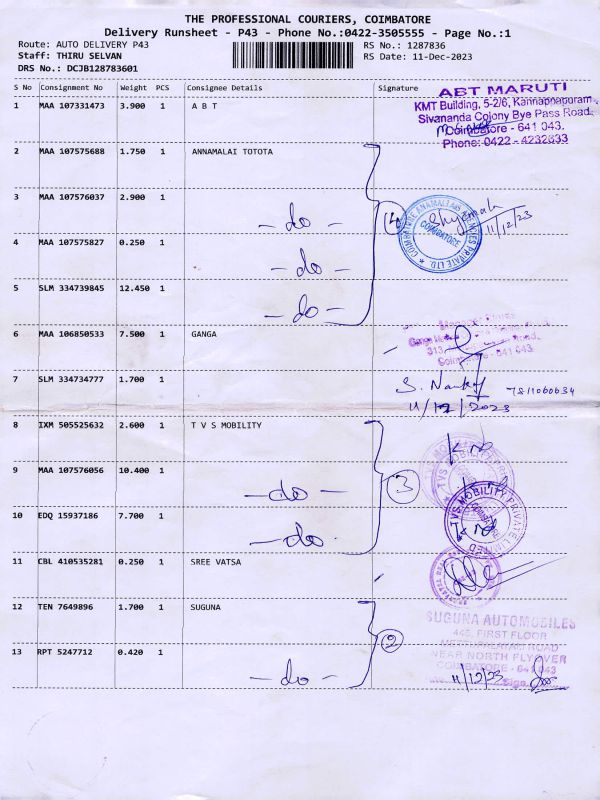 THE PROFESSIONAL COURIERS, COIMBATORE
Delivery Runsheet - P43 - Phone No.:0422-3505555 - Page No.:1
Route: AUTO DELIVERY P43
Staff: THIRU SELVAN
DRS No.: DCJB128783601
RS No.: 1287836
RS Date: 11-Dec-2023
S No Consignment No Weight PCS Consignee Details Signature
1 MAA 107331473 3.900 1 A B T
ABT MARUTI
KMT Building, 5-2/6, Kannapnapuram
Sivananda Colony Bye Pass Road.
Coimbatore - 641 043.
Phone: 0422 - 4232833
2 MAA 107575688 1.750 1 ANNAMALAI TOTOTA
3 MAA 107576037 2.900 1 - do -
4 MAA 107575827 0.250 1 - do -
5 SLM 334739845 12.450 1 - do -
COIMBATORE
11/12/23
6 MAA 106850533 7.500 1 GANGA
Coimbatore - 641 043
7 SLM 334734777 1.700 1
11/12/2023
8 IXM 505525632 2.600 1 T V S MOBILITY
9 MAA 107576056 10.400 1 - do -
3
10 EDQ 15937186 7.700 1 - do -
TVS MOBILITY PRIVATE LIMITED
11 CBL 410535281 0.250 1 SREE VATSA
12 TEN 7649896 1.700 1 SUGUNA
2
13 RPT 5247712 0.420 1 - do -
SUGUNA AUTOMOBILES
446, FIRST FLOOR
METTUPALAYAM ROAD
NEAR NORTH FLYOVER
COIMBATORE - 641 043
11/12/23